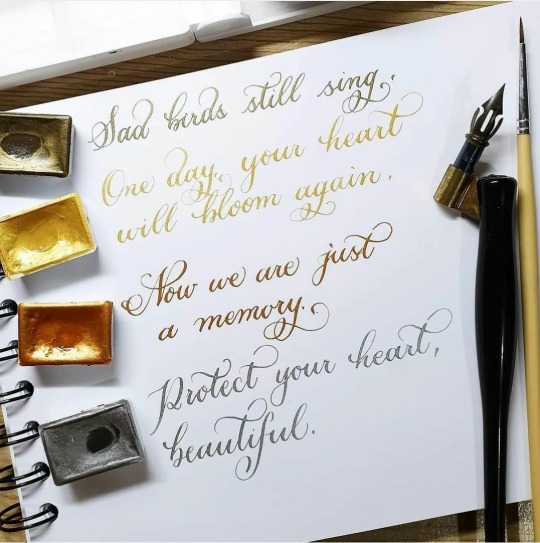 Sad birds still sing.
One day, your heart
will bloom again.
Now we are just
a memory.
Protect your heart,
beautiful.